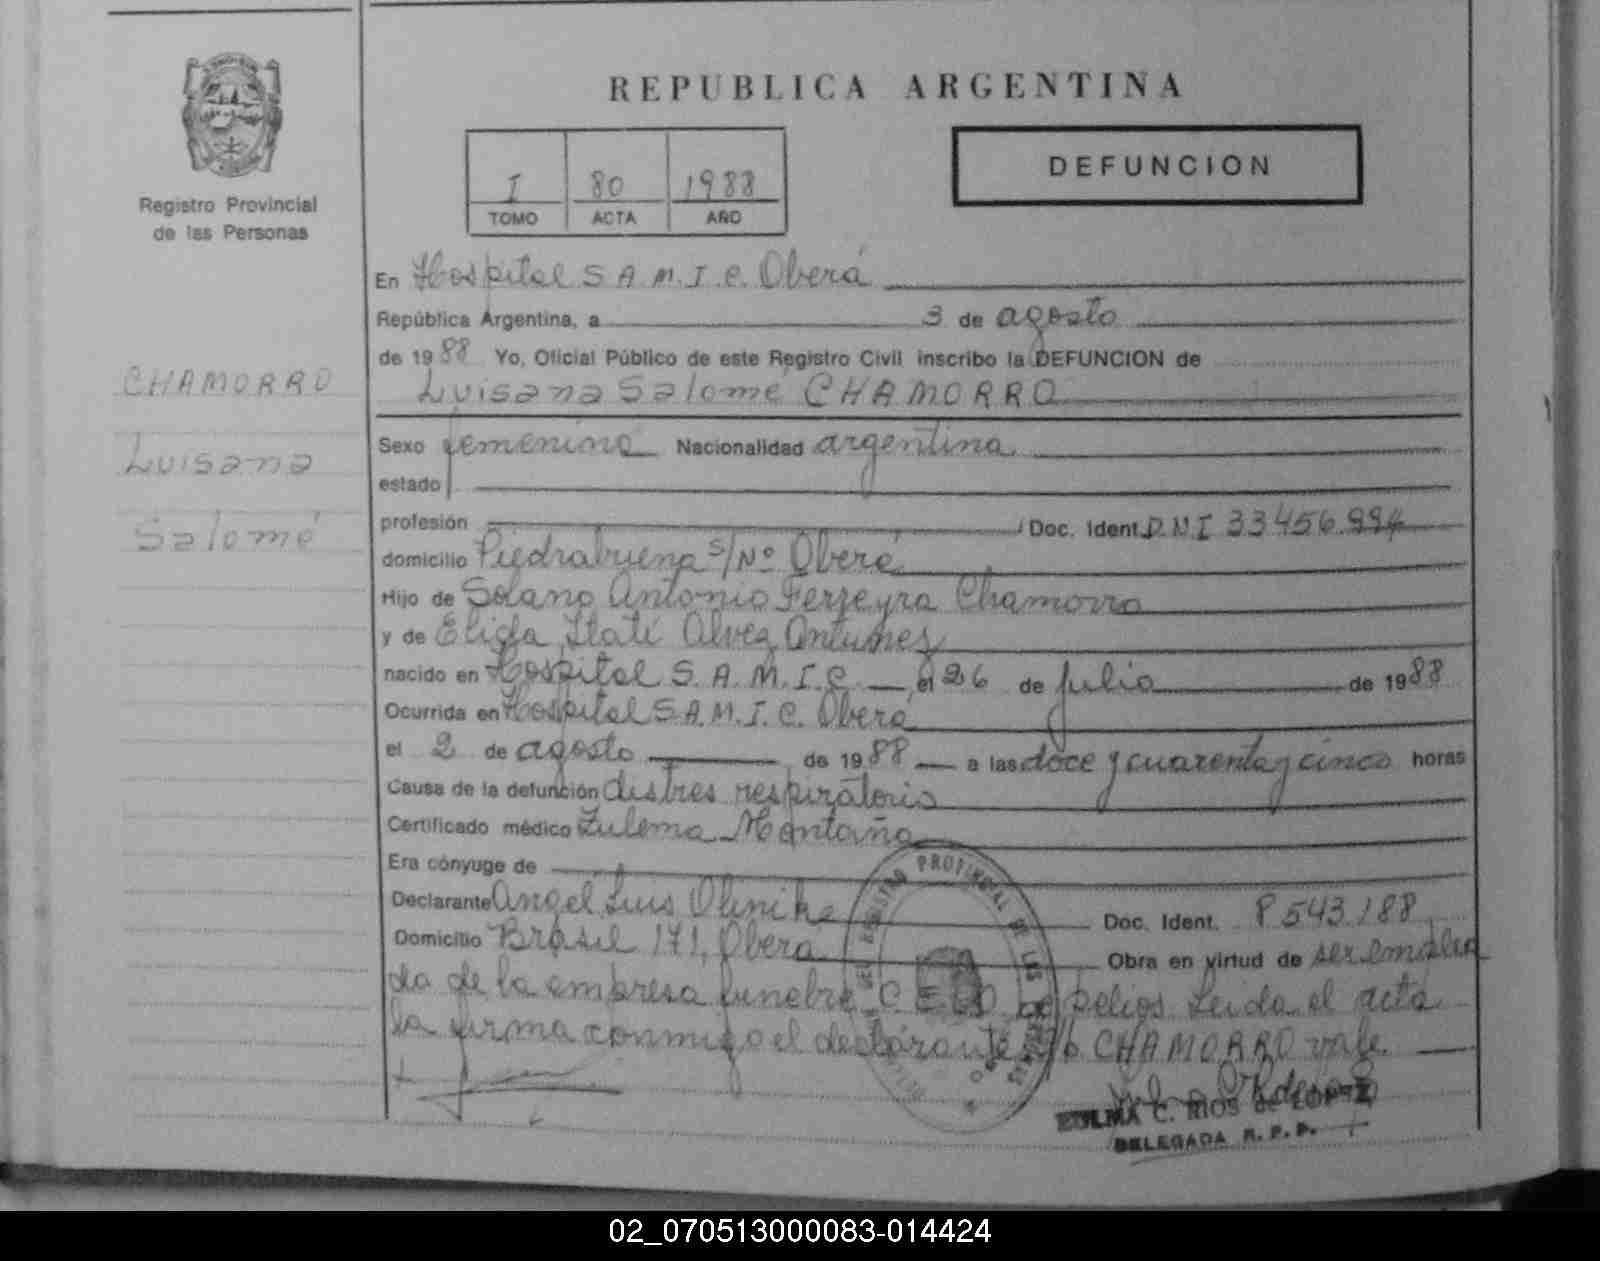 REPUBLICA ARGENTINA
I 80 1988
TOMO ACTA AÑO
DEFUNCION
Registro Provincial
de las Personas
CHAMORRO
Luisana
Salomé
En Hospital S.A.M.I.C. Oberá
República Argentina, a 3 de agosto
de 1988 Yo, Oficial Público de este Registro Civil inscribo la DEFUNCION de
Luisana Salomé CHAMORRO
Sexo femenino Nacionalidad argentina
estado
profesión / Doc. Ident. D.N.I 33456.994
domicilio Piedrabuena s/Nº Oberá
Hijo de Solano Antonio Ferreyra Chamorro
y de Itatí Alvez Antunes
nacido en Hospital S.A.M.I.C. el 26 de julio de 1988
Ocurrida en Hospital S.A.M.I.C. Oberá
el 2 de agosto de 1988 a las doce y cuarenta y cinco horas
Causa de la defunción distres respiratorio
Certificado médico Zulema Montaño
Era cónyuge de
Declarante Angel Luis Doc. Ident. 8543.188
Domicilio Brasil 171, Oberá Obra en virtud de ser emplea
do de la empresa funebre C.E.L.O. sepelios. Leida el acta
la firma conmigo el declarante CHAMORRO vale
REGISTRO PROVINCIAL DE LAS PERSONAS
ZULMA C. RIOS de LOPEZ
DELEGADA R. P. P.
02_070513000083-014424